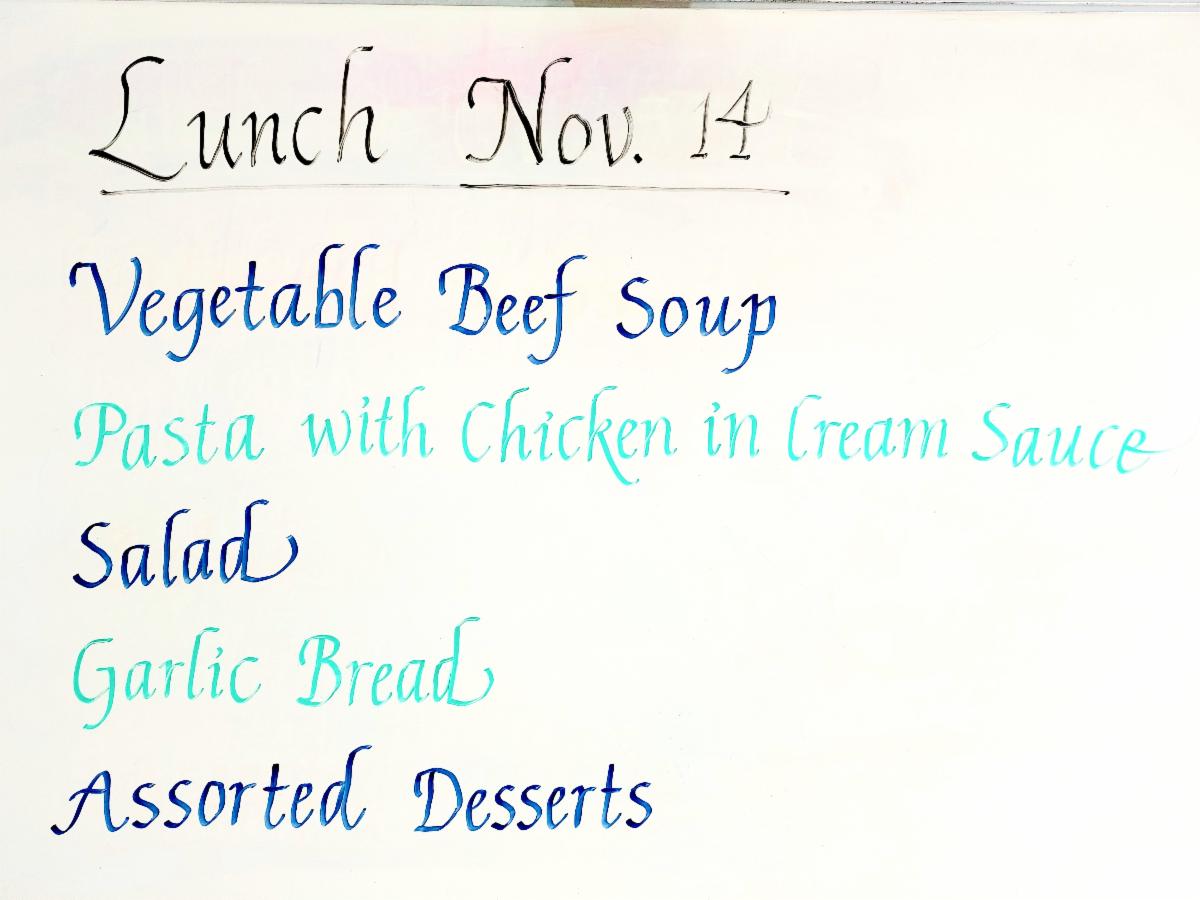 Lunch Nov. 14
Vegetable Beef Soup
Pasta with Chicken in Cream Sauce
Salad
Garlic Bread
Assorted Desserts